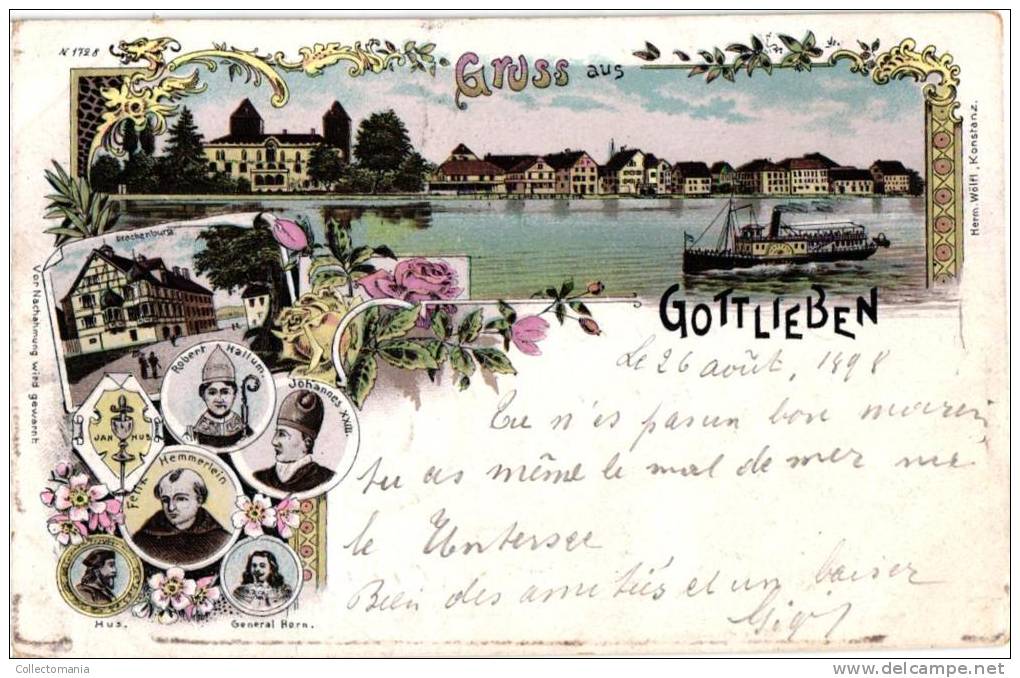 N 1728
Gruss aus
Herm. Wölfl, Konstanz.
Drachenburg
GOTTLIEBEN
Vor Nachahmung wird gewarnt.
Robert Hallum.
Johannes XXIII.
JAN HUS
Felix Hemmerlein
Hus.
General Horn.
Le 26 août, 1898
Tu n'es pas un bon marin
tu as même le mal de mer
le Untersee
Bien des amitiés et un baiser
Collectomania
delcampe.net